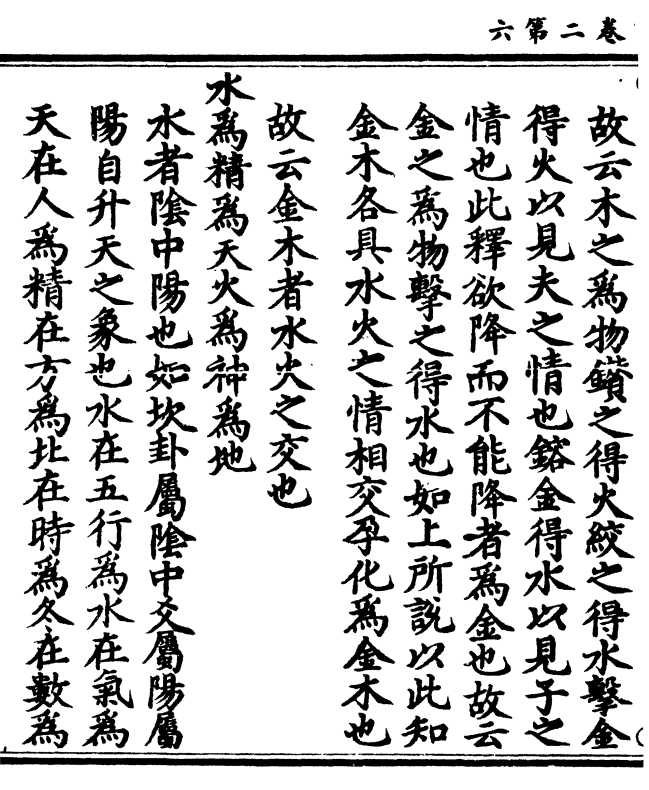 卷二第六
故云木之爲物鑽之得火絞之得水擊金
得火以見夫之情也鎔金得水以見子之
情也此釋欲降而不能降者爲金也故云
金之爲物擊之得水也如上所說以此知
金木各具水火之情相交孕化爲金木也
故云金木者水火之交也
水爲精爲天火爲神爲地
水者陰中陽也如坎卦屬陰中爻屬陽屬
陽自升天之象也水在五行爲水在氣爲
天在人爲精在方爲北在時爲冬在數爲